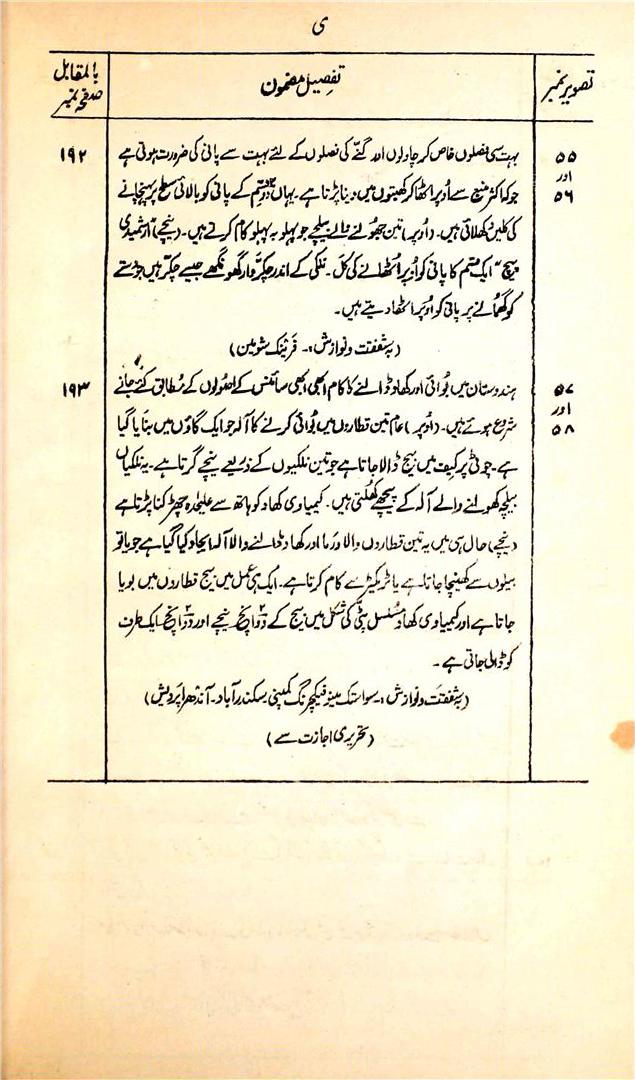 ی
تصویر نمبر تفصیل مضمون بالمقابل صفحہ نمبر
۵۵ اور ۵۶
بہت سی فصلوں خاص کر چاولوں اور گنے کی فصلوں کے لئے بہت سے پانی کی ضرورت ہوتی ہے ۱۹۲
جو کہ اکثر منبع سے اُوپر اٹھا کر کھیتوں میں دینا پڑتا ہے۔ یہاں دو قسم کے پانی کو بالائی سطح پر پہنچانے
کی کلیں دکھلائی ہیں۔ (اُوپر) تین جھولنے والے بیلچے جو پہلو بہ پہلو کام کرتے ہیں۔ (نیچے) "ارشمیدی
پیچ" ایک قسم کا پانی کو اُوپر اُٹھانے کی کل۔ نلکی کے اندر چکر دار گھونگھے جیسے چکر ہیں جو دستے
کو گھمانے پر پانی کو اوپر اٹھا دیتے ہیں۔
(بہ شفقت و نوازش:۔ فرینک شومین)
۵۷ اور ۵۸
ہندوستان میں بُوائی اور کھاد ڈالنے کا کام ابھی ابھی سائنس کے اصُولوں کے مُطابق کئے جانے ۱۹۳
شروع ہوئے ہیں۔ (اُوپر) عام تین قطاروں میں بُوائی کرنے کا آلہ جو ایک گاؤں میں بنایا گیا
ہے۔ چوٹی پر کیف میں بیج ڈالا جاتا ہے جو تین نلکیوں کے ذریعے نیچے گرتا ہے۔ یہ نلکیاں
بیلچہ کھولنے والے آلہ کے پیچھے کھُلتی ہیں۔ کیمیاوی کھاد کو ہاتھ سے علیٰحدہ چھڑکنا پڑتا ہے
(نیچے) حال ہی میں یہ تین قطاروں والا ورما اور کھاد ڈالنے والا آلہ ایجاد کیا گیا ہے جو یا تو
بیلوں سے کھینچا جاتا ہے یا ٹریکٹر سے کام کرتا ہے۔ ایک ہی عمل میں بیج قطاروں میں بویا
جاتا ہے اور کیمیاوی کھاد مُسلسل پٹی کی شکل میں بیج کے دو انچ نیچے اور دو انچ ایک طرف
کو ڈالی جاتی ہے۔
(بہ شفقت و نوازش:۔ سواستک مینوفیکچرنگ کمپنی سکندرآباد۔ آندھرا پردیش)
(تحریری اجازت سے)